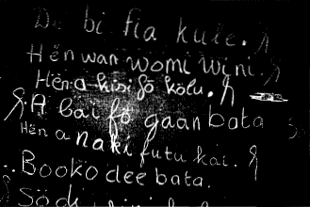 De bi fia kule.
Hën wan womi wini.
Hën a kisi fö kölu.
A bai fö gaan bata
Hën a naki futu kai.
Booko dee bata.